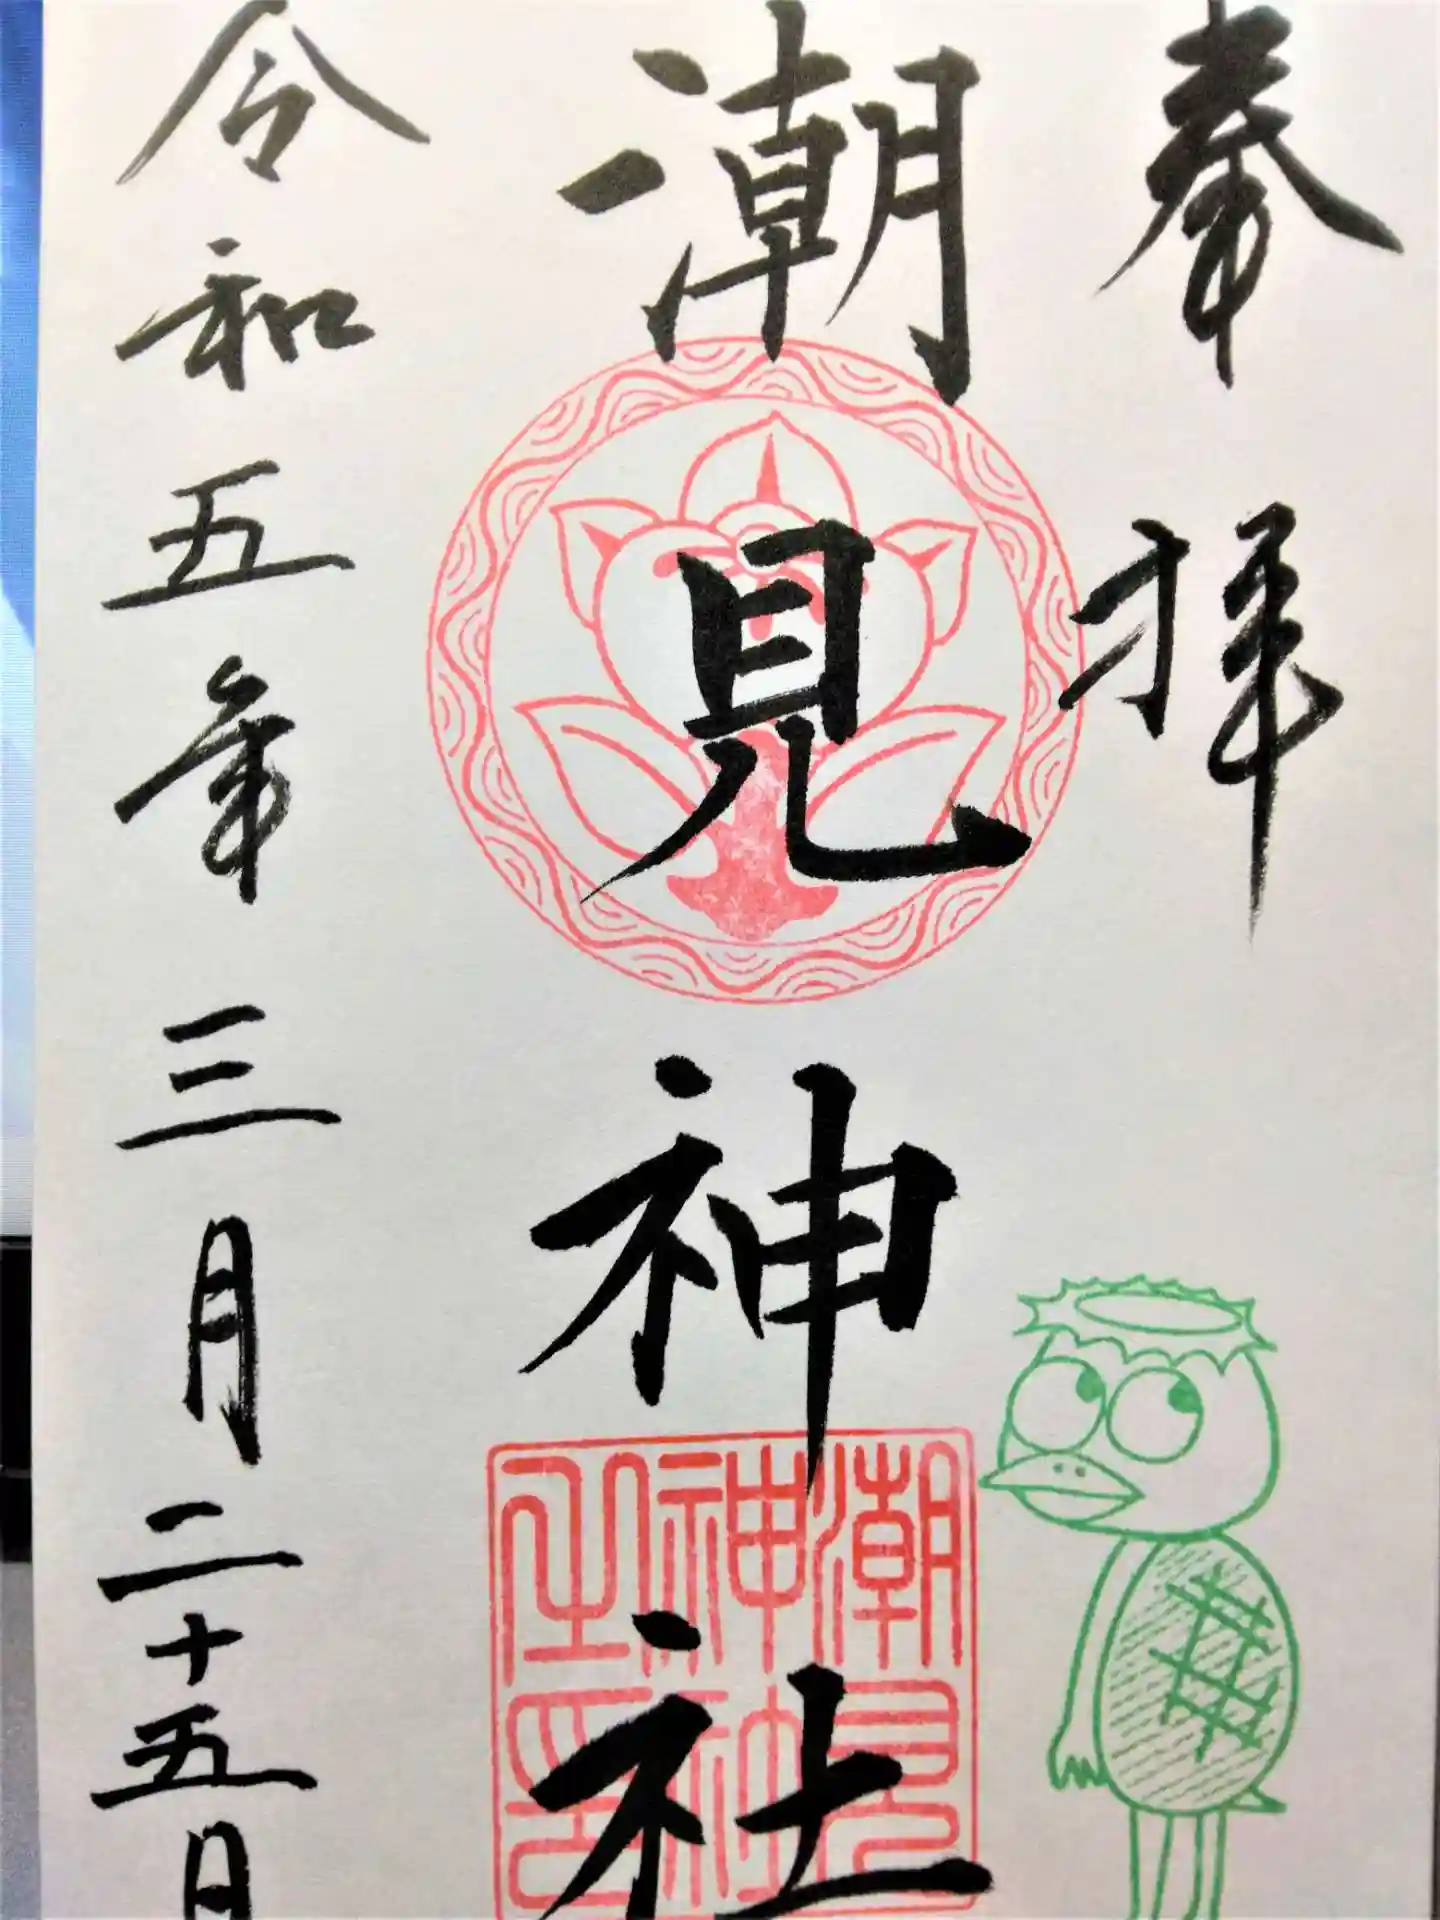 奉拝
潮見神社
潮見神社之印
令和五年三月二十五日